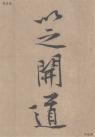 以之開道